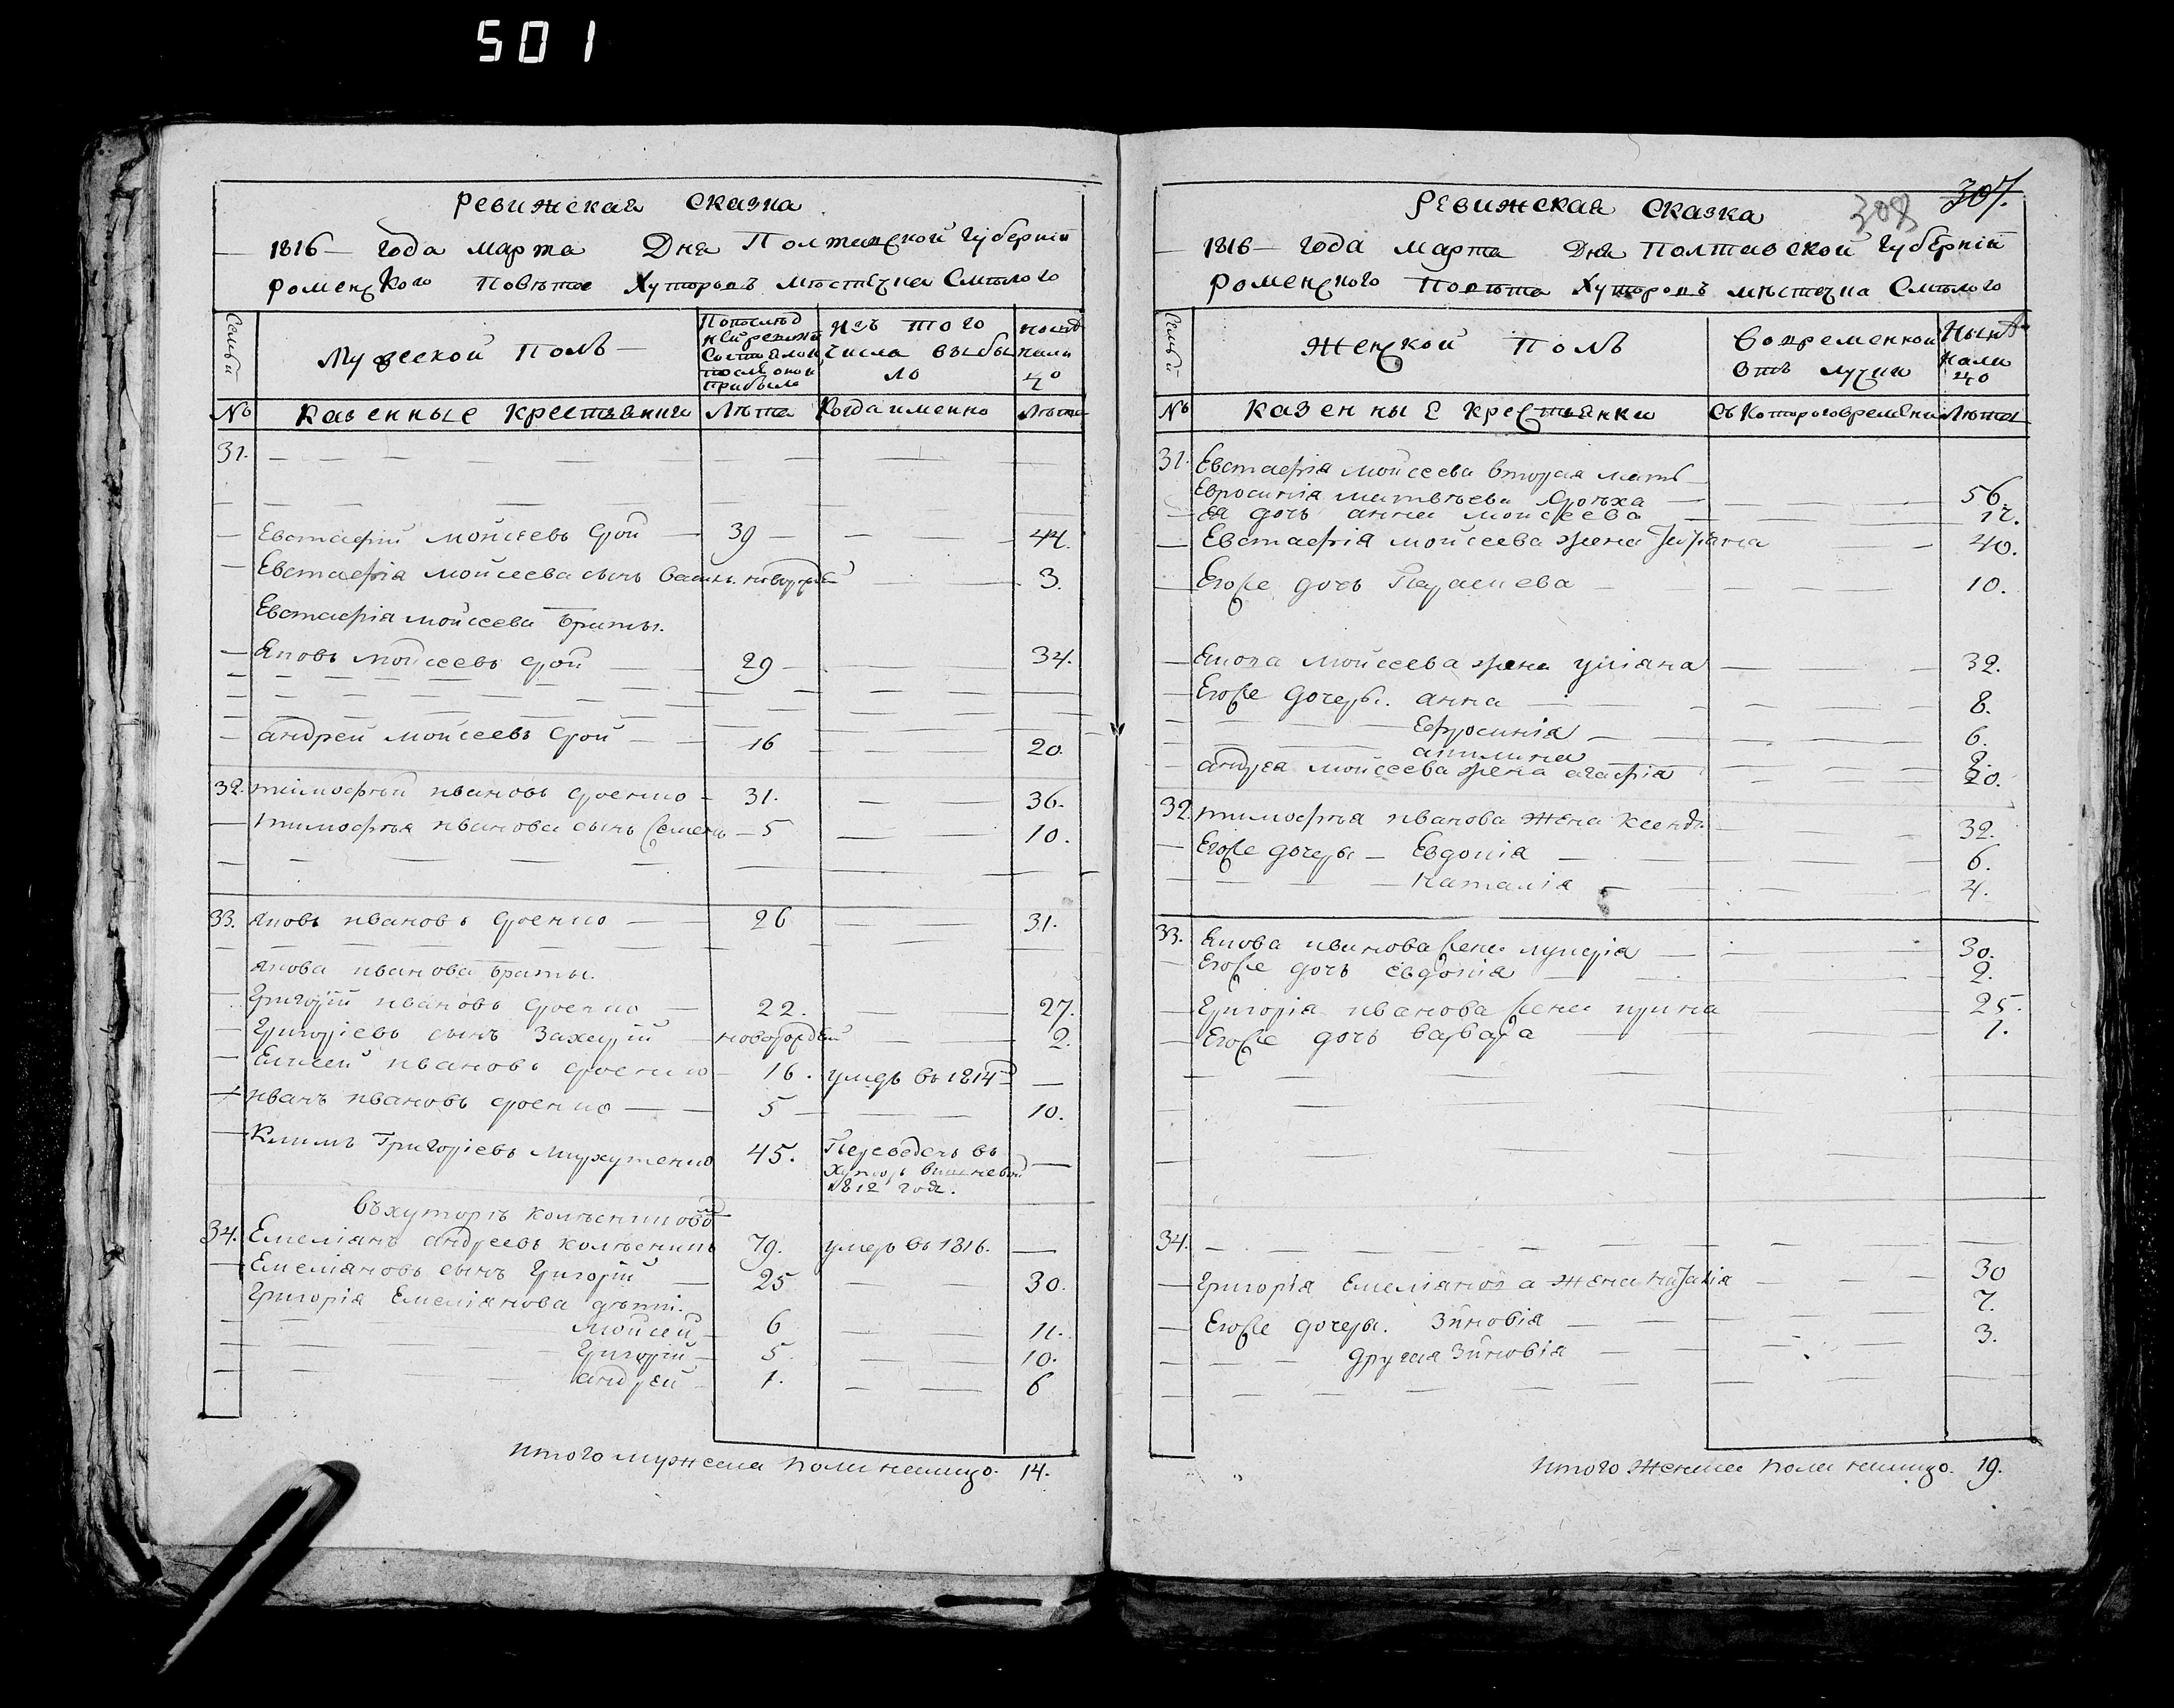 501
Ревижская Сказка
1816 — года марта Дня Полтавской Губерніи
Роменского Повѣта Хуторовъ мѣстечка Смѣлого
Семьи
Мужеской Полъ
По последней ревизіи состояло и после оной прибыло
Изъ того числа выбыло
нынѣ на лицо
№ Казенные Крестьяние Лѣта Когда именно Лѣта
31.
Евстафий Мойсеевъ Срой 39 44.
Евстафія Мойсеева сынъ Василь новорожд 3.
Евстафія Мойсеева Браты.
Яковъ Мойсеевъ Срой 29 34.
андрей Мойсеевъ Срой 16 20.
32. тимофѣй ивановъ Сроенко 31. 36.
тимофѣя иванова сынъ Семенъ 5 10.
33. яковъ ивановъ Сроенко 26 31.
якова иванова браты.
Григорій ивановъ Сроенко 22. 27.
Григоріевъ сынъ Захарій новорожден 2.
Елисей ивановъ Сроенко 16. умеръ въ 1814
иванъ ивановъ Сроенко 5 10.
Климъ Григоріевъ 45. Переведенъ въ
хуторъ Вишневой
1812 года.
въ хуторѣ Колѣсниковой
34. Емеліанъ андреевъ Колѣсникъ 79. умеръ въ 1816.
Емеліановъ сынъ Григорій 25 30.
Григорія Емеліанова дѣти.
Мойсей 6 11.
Григорій 5. 10.
андрей 1. 6
Итого мужеска пола налицо. 14.
307.
308
Ревижская Сказка
1816 — года Марта Дня Полтавской Губерніи
Роменского Повѣта Хуторовъ мѣстечка Смѣлого
Семьи
Женской Полъ
Во временной отлучки
Нынѣ на лицо
№ Казенные Крестьянки Съ Которого времени Лѣта
31. Евстафія Мойсеева вторая мать
Евросинія Матвѣева 56.
Ея дочь анна Мойсеева 12.
Евстафія Мойсеева жена 40.
Егоже дочь 10.
Якова Мойсеева жена Уліяна 32.
Егоже дочеры. анна 8.
Ефросинія 6.
акилина 2.
андрея Мойсеева жена агафія 20.
32. тимофѣя иванова жена Ксенія 32.
Егоже дочеры — Евдокія 6.
Наталія 4.
33. Якова иванова жена лукерія 30.
Егоже дочь евдокія 2.
Григорія иванова жена ирина 25.
Егоже дочь варвара 1.
34.
Григорія Емеліанова жена 30
Егоже дочеры. Зиновія 7.
Другая Зиновія 3.
Итого женска пола налицо. 19.